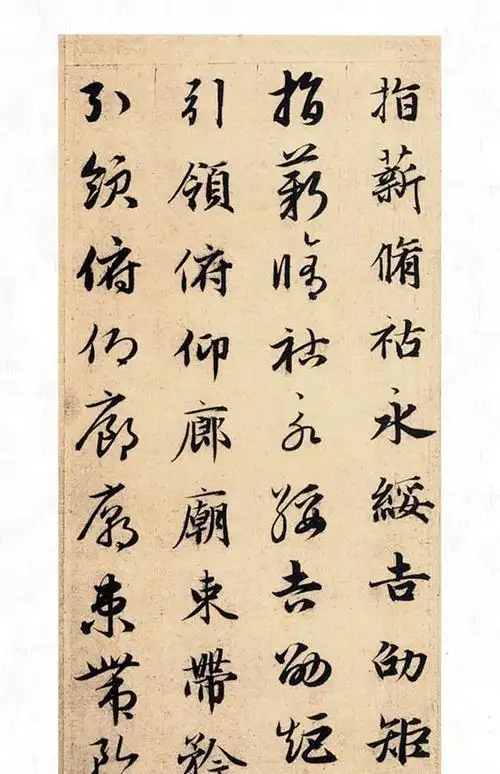 指薪脩祜永綏吉劭矩
指薪脩祜永綏吉劭矩
引領俯仰廊廟束帶矜
引領俯仰廊廟束帶矜